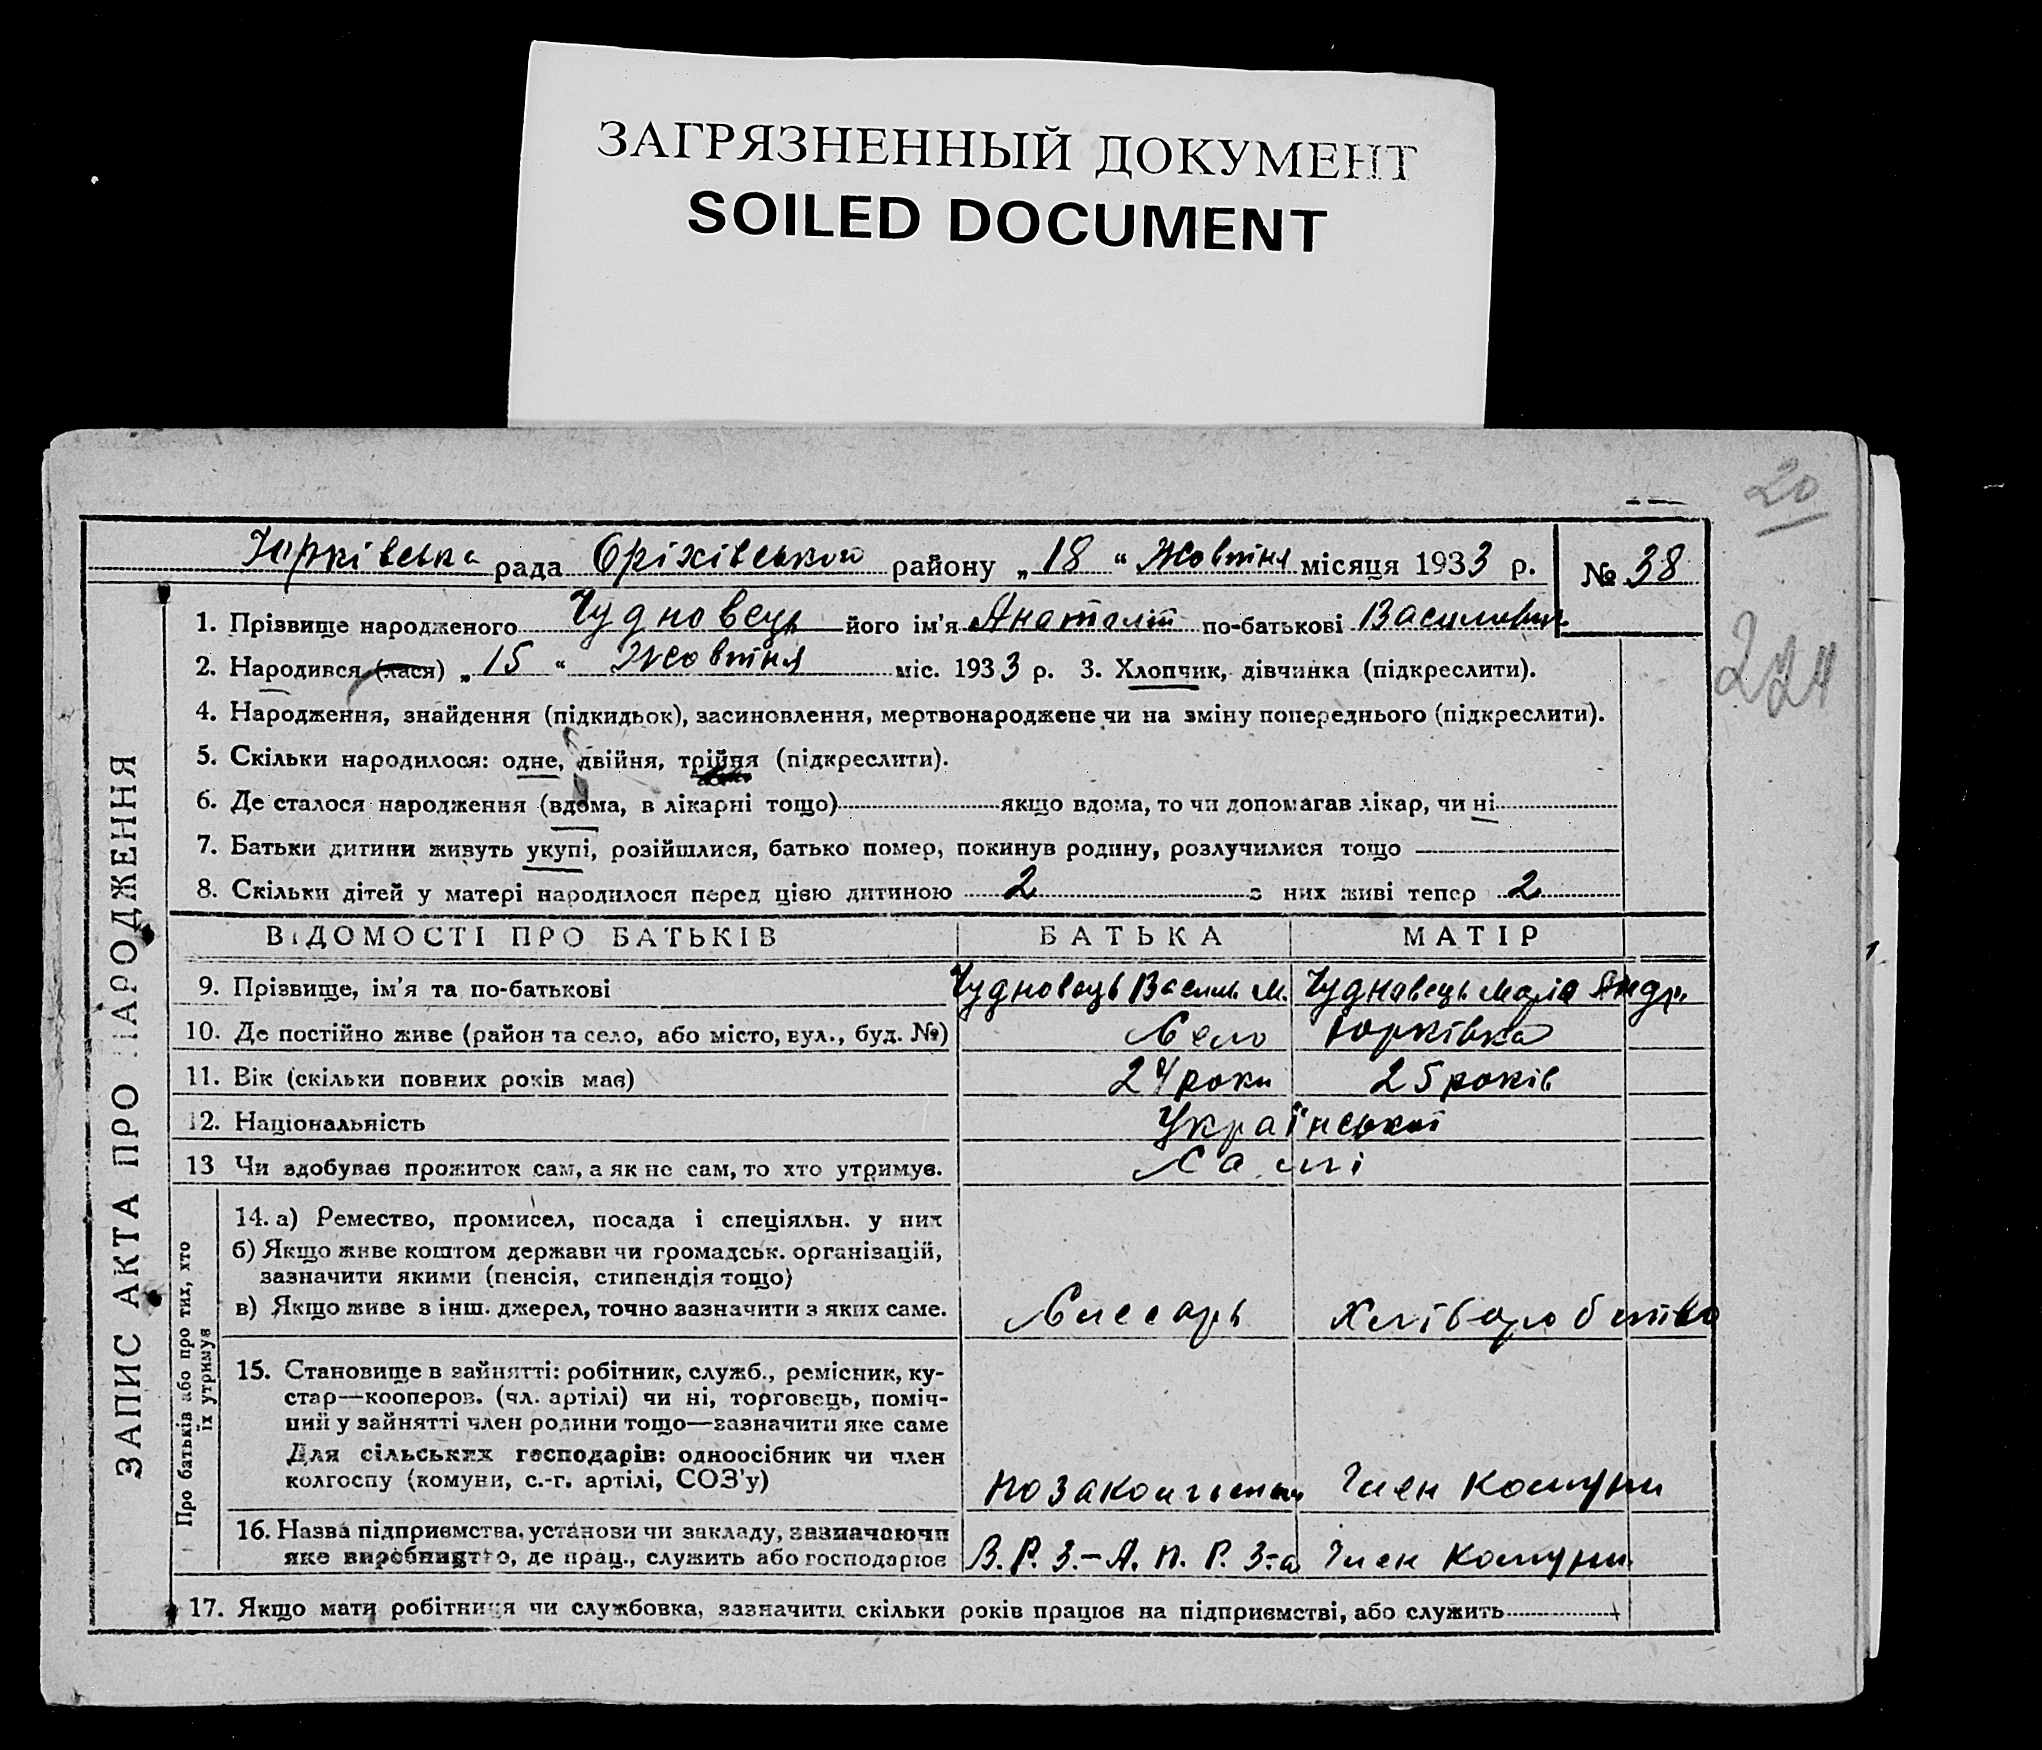 ЗАГРЯЗНЕННЫЙ ДОКУМЕНТ
SOILED DOCUMENT
20
224
Юрківська рада Оріхівського району „18“ Жовтня місяця 1933 р. № 38
ЗАПИС АКТА ПРО НАРОДЖЕННЯ
1. Прізвище народженого Чудновець його ім'я Анатолій по-батькові Василович
2. Народився (лася) „15“ Жовтня міс. 1933 р. 3. Хлопчик, дівчинка (підкреслити).
4. Народження, знайдення (підкидьок), засиновлення, мертвонароджене чи на зміну попереднього (підкреслити).
5. Скільки народилося: одне, двійня, трійня (підкреслити).
6. Де сталося народження (вдома, в лікарні тощо) якщо вдома, то чи допомагав лікар, чи ні
7. Батьки дитини живуть укупі, розійшлися, батько помер, покинув родину, розлучилися тощо
8. Скільки дітей у матері народилося перед цією дитиною 2 з них живі тепер 2
ВІДОМОСТІ ПРО БАТЬКІВ БАТЬКА МАТІР
9. Прізвище, ім'я та по-батькові Чудновець Васил. М. Чудновець Марія Андр.
10. Де постійно живе (район та село, або місто, вул., буд. №) Село Юрківка
11. Вік (скільки повних років має) 24 роки 25 років
12. Національність Української
13 Чи здобуває прожиток сам, а як не сам, то хто утримує. Самі
Про батьків або про тих, хто їх утримує
14. а) Ремество, промисел, посада і спеціяльн. у них
б) Якщо живе коштом держави чи громадськ. організацій,
зазначити якими (пенсія, стипендія тощо)
в) Якщо живе з інш. джерел, точно зазначити з яких саме. Слесарь Хліборобство
15. Становище в зайнятті: робітник, служб., ремісник, ку-
стар—кооперов. (чл. артілі) чи ні, торговець, поміч-
ний у зайнятті член родини тощо—зазначити яке саме
Для сільських господарів: одноосібник чи член
колгоспу (комуни, с.-г. артілі, СОЗ'у) Член Комуни
16. Назва підприємства, установи чи закладу, зазначаючи
яке виробництво, де прац., служить або господарює В. Р. З.—А. П. Р. З-а Член Комуни
17. Якщо мати робітниця чи службовка, зазначити скільки років працює на підприємстві, або служить